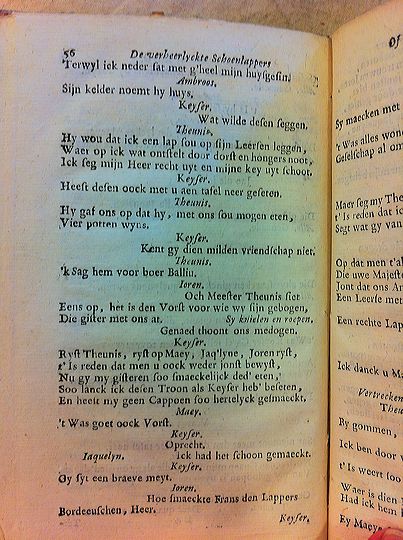 56 De verheerlyckte Schoenlappers
Terwyl ick neder sat met g'heel mijn huysgesin.
Ambroos.
Sijn kelder noemt hy huys.
Keyser.
Wat wilde desen seggen.
Theunis.
Hy wou dat ick een lap sou op sijn Leersen leggen,
Waer op ick wat ontstelt door dorst en hongers noot,
Ick seg mijn Heer recht uyt en mijne key uyt schoot.
Keyser.
Heeft desen oock met u aen tafel neer geseten.
Theunis.
Hy gaf ons op dat hy, met ons sou mogen eten,
Vier potten wyns.
Keyser.
Kent gy dien milden vriendschap niet.
Theunis.
'k Sag hem voor boer Balliu.
Joren.
Och Meester Theunis siet
Eens op, het is den Vorst voor wie wy sijn gebogen,
Die gister met ons at. Sy knielen en roepen.
Genaed thoont ons medogen.
Keyser.
Ryst Theunis, ryst op Maey, Jaq'lyne, Joren ryst,
t' Is reden dat men u oock weder jonst bewyst,
Nu gy my gisteren soo smaeckelijck ded' eten,
Soo lanck ick desen Troon als Keyser heb' beseten,
En heeft my geen Cappoen soo hertelyck gesmaeckt.
Maey.
't Was goet oock Vorst.
Keyser.
Oprecht.
Jaquelyn. Ick had het schoon gemaeckt.
Keyser.
Gy syt een braeve meyt.
Joren.
Hoe smaeckte Frans den Lappers
Bordeeuschen, Heer.
Keyser,
Of
Sy maecken met
't Was alles won
Geselschap al om
Maer seg my The
t' Is reden dat ick
Segt wat gy van
Op dat men t'al
Die uwe Majeste
Jont dat ons Am
Een Leerse met
Een rechte Lapp
Ick danck u Ma
Vertrecken
Theu
Ry gommen,
Ick ben door
t' Is weert soo
Waer is dien
Had ick hem
Ey Maeye